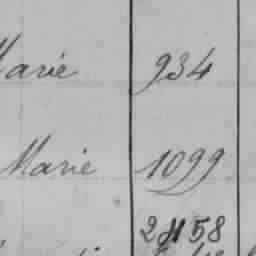 Marie 934
Marie 1099
2458